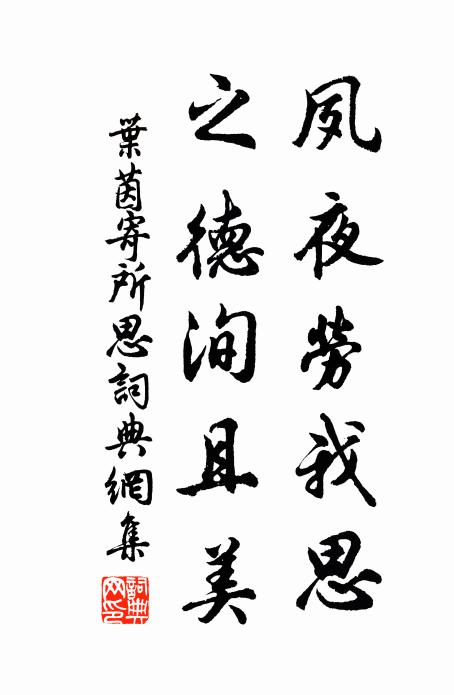 夙夜勞我思
之德洵且美
葉茵寄所思詞典網集
詞典网印